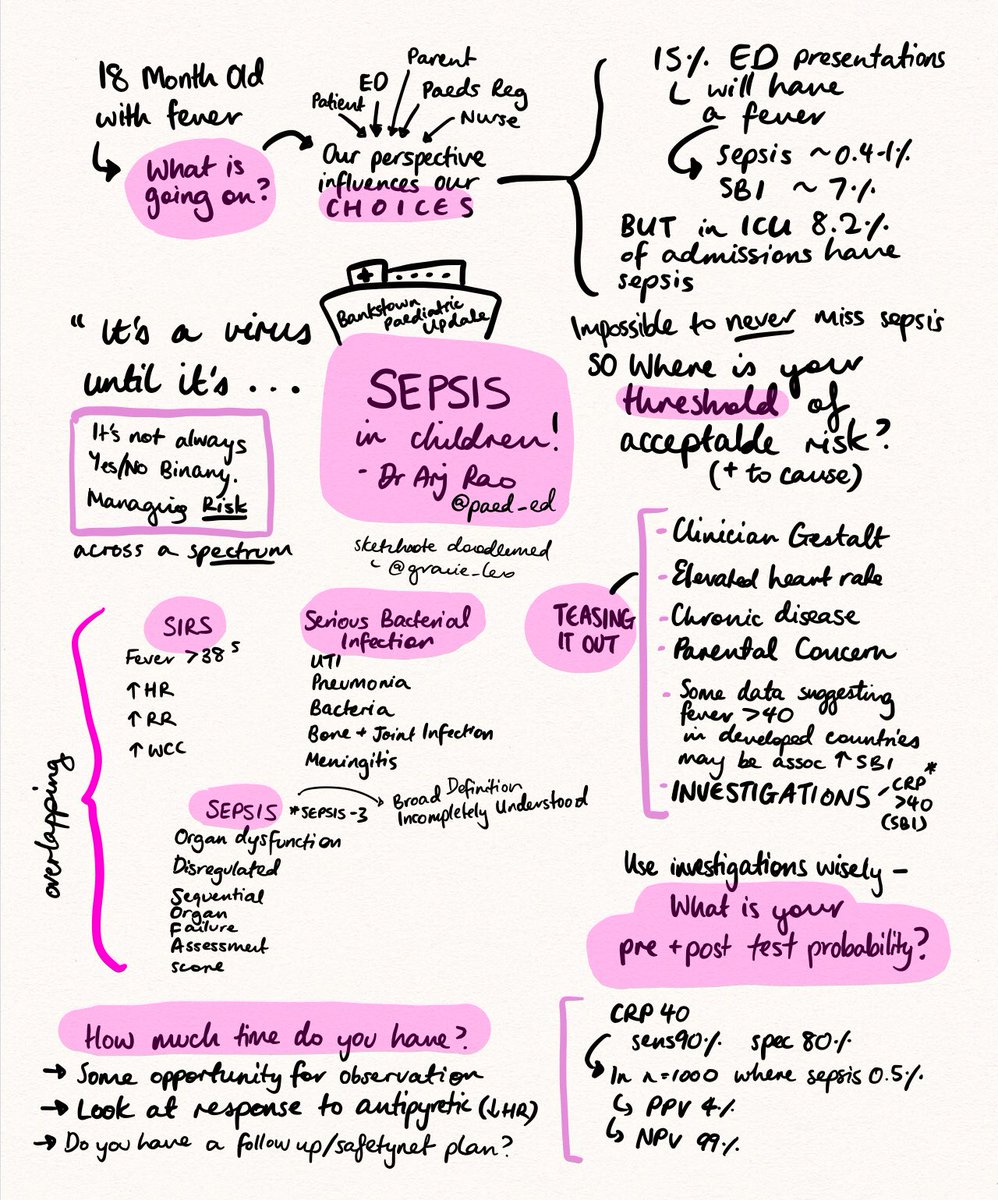 18 Month Old
with fever
What is
going on?
Patient
ED
Parent
Paeds Reg
Nurse
Our perspective
influences our
CHOICES
15% ED presentations
will have
a fever
sepsis ~0.4-1%
SBI ~ 7%
BUT in ICU 8.2%
of admissions have
sepsis
Impossible to never miss sepsis
SO Where is your
threshold of
acceptable risk?
(+ to cause)
"It's a virus
until it's ...
It's not always
Yes/No Binary.
Managing Risk
across a spectrum
Bankstown
Paediatric
Update
SEPSIS
in children!
- Dr Arj Rao
@paed_ed
sketchnote doodleemed
@gracie_leo
TEASING
IT OUT
- Clinician Gestalt
- Elevated heart rate
- Chronic disease
- Parental Concern
- Some data suggesting
fever >40
in developed countries
may be assoc ↑SBI
- INVESTIGATIONS - CRP*
>40
(SBI)
overlapping
SIRS
Fever >38⁵
↑HR
↑RR
↑WCC
Serious Bacterial
Infection
UTI
Pneumonia
Bacteria
Bone + Joint Infection
Meningitis
SEPSIS *SEPSIS-3
Broad Definition
Incompletely Understood
Organ dysfunction
Disregulated
Sequential
Organ
Failure
Assessment
score
Use investigations wisely -
What is your
pre + post test probability?
CRP 40
sens90% spec 80%
In n=1000 where sepsis 0.5%
PPV 4%
NPV 99%
How much time do you have?
→ Some opportunity for observation
→ Look at response to antipyretic (↓HR)
→ Do you have a follow up/safetynet plan?